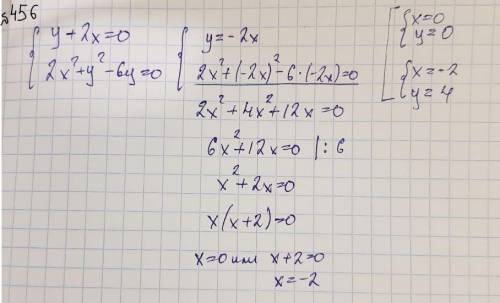 №456
{ y+2x=0
{ 2x²+y²-6y=0
{ y=-2x
{ 2x²+(-2x)²-6·(-2x)=0
2x²+4x²+12x=0
6x²+12x=0 |:6
x²+2x=0
x(x+2)=0
x=0 или x+2=0
x=-2
[ { x=0
{ y=0
{ x=-2
{ y=4